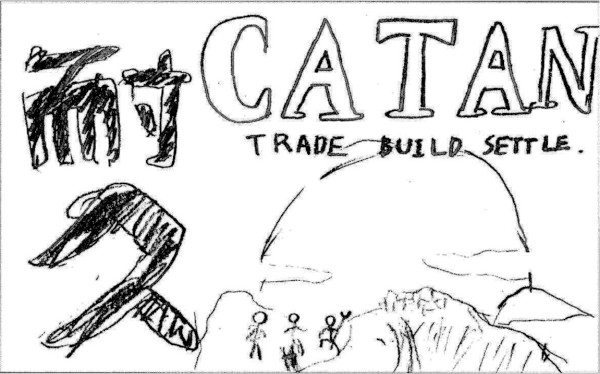 耐久
CATAN
TRADE BUILD SETTLE.